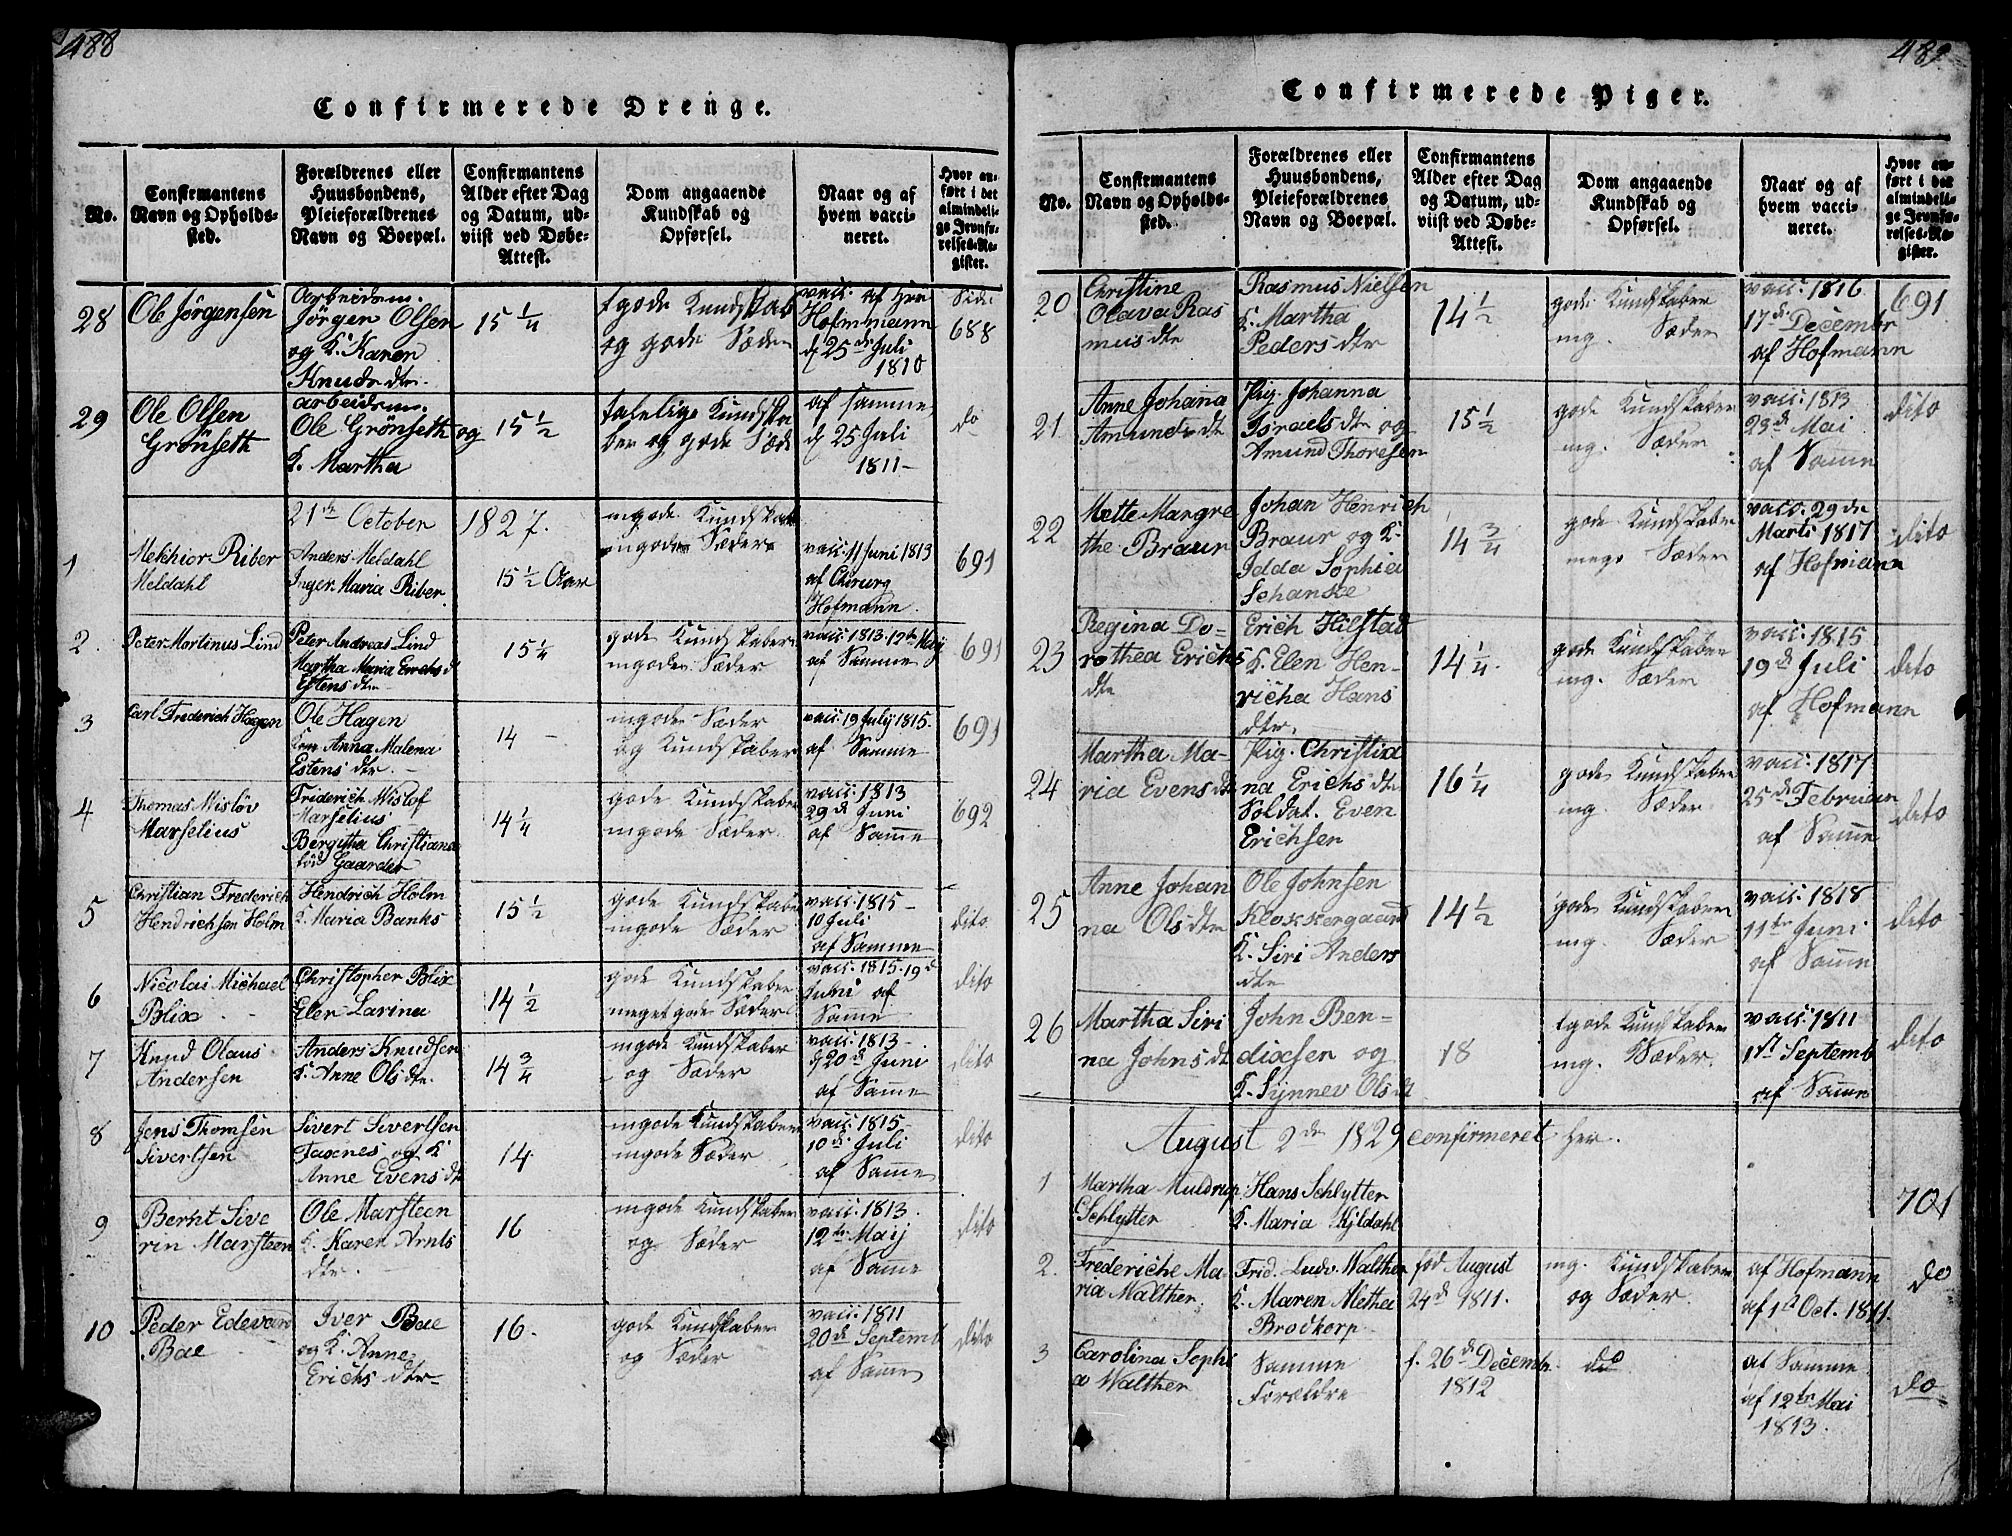 488
Confirmerede Drenge.
No.
Confirmantens
Navn og Opholds-
sted.
Forældrenes eller
Huusbondens,
Pleieforældrenes
Navn og Boepæl.
Confirmantens
Alder efter Dag
og Datum, ud-
viist ved Døbe-
Attest.
Dom angaaende
Kundskab og
Opførsel.
Naar og af
hvem vacci-
neret.
Hvor an-
ført i det
almindeli-
ge Jevnfø-
relses-Re-
gister.
28
Ole Jörgensen
Arbeidsm.
Jörgen Olsen
og K. Karen
Knuds dtr.
15 1/4
tgode Kundskab
og gode Sæder
vacc. af Hrr
Hofmmann
d 25de Juli
1810
Side
688
29
Ole Olsen
Grönseth
arbeidsm.
Ole Grönseth og
K. Martha
15 1/2
talelige Kundska
ber og gode Sæd
af samme
d 25 Juli
1811-
do
21de October 1827.
1
Melchior Riber
Meldahl
Anders Meldahl
Inger Maria Riber
15 1/2 Aar
mgode Kundskab
mgode Sæder
vacc. 11 Juni 1813
af Chirurg
Hofmann.
691
2.
Peter Mortinus Lind
Peter Andreas Lind
Martha Maria Erichs d
Estens dtr
15 1/4
gode Kundskaber
mgode Sæder
vacc. 1813. 12te Maij
af Samme
691
3
Carl Frederich Hagen
Ole Hagen
Kon Anna Malena
Estens dtr.
14 -
mgode Sæder
og Kundskaber
vacc. 19 July 1815.
af Samme
691
4
Thomas Wislöv
Marselius
Friderich Wislof
Marselius
Bergitha Christiana
föd Gaarder
14 1/4
gode Kundskaber
mgode Sæder.
vacc. 1813
29de Juni
af Samme
692
5
Christian Frederich
Hendrichsen Holm
Hendrich Holm
K. Maria Banks
15 1/2
gode Kundskabe
mgode Sæder
vacc. 1815-
10 Juli
af Samme
dito
6
Nicolai Michael
Blix
Christopher Blix
Elen Larina
14 1/2
gode Kundskaber
meget gode Sæder
vacc. 1815. 19d
Juni af
Samme
dito
7
Knud Olaus
Andersen
Anders Knudsen
K. Anne Ols dtr.
14 3/4
mgode Kundskaber
og Sæder
vacc. 1813-
d 20de Juni
af Samme
dito
8
Jens Thomsen
Sivertsen
Sivert Sivertsen
Faxnes og K
Anne Evens dt
14
mgode Kundskaber
mgode Sæder
vacc. 1815-
10de Juli
af Samme
dito
9
Bernt Sive
rin Marsteen
Ole Marsteen
K. Karen Arnts
dtr.
16
mgode Kundskaber
og Sæder
vacc. 1813.
12te Maij
af Samme
dito
10
Peder Edevard
Bae
Iver Bae
og K. Anne
Erichs dtr
16.
gode Kundskaber
og Sæder
vacc. 1811
20de Septemb
af Samme
dito
489
Confirmerede Piger.
No.
Confirmantens
Navn og Opholds-
sted.
Forældrenes eller
Huusbondens,
Pleieforældrenes
Navn og Boepæl.
Confirmantens
Alder efter Dag
og Datum, ud-
viist ved Døbe-
Attest.
Dom angaaende
Kundskab og
Opførsel.
Naar og af
hvem vacci-
neret.
Hvor an-
ført i det
almindeli-
ge Jevnfø-
relses-Re-
gister.
20
Christine
Olava Ras
mus dtr
Rasmus Nielsen
K. Martha
Peders dtr
14 1/2
gode Kundskaber
mg. Sæder
vacc. 1816
17de Decembr
af Hofmann
691
21
Anne Johana
Amunds dtr
Pig. Johanna
Israels dtr og
Amund Thoresen
15 1/2
gode Kundskaber
mg. Sæder
vacc. 1813
23de Mai
af Samme
dito
22
Mette Margre
the Braur
Johan Henrich
Braur og K.
Idda Sophia
Schanke
14 3/4
gode Kundskaber
meg. Sæder
vacc. 29de
Marts 1817
af Hofmann
dito
23
Regina Do=
rothea Erichs
dtr
Erich Hilstad
K. Elen Hen-
richa Hans
dtr.
14 1/4.
gode Kundskaber
mg. Sæder
vacc. 1815
19de Juli
af Hofmann
dito
24
Martha Ma-
ria Evens dtr
Pig. Christia
na Erichs dtr
Soldat. Even
Erichsen
16 1/4
gode Kundskaber
mg. Sæder
vacc. 1817
25de Februar
af Samme
dito
25
Anne Johan
na Ols dtr
Ole Johnsen
Klokkergaard
K. Siri Anders
dtr
14 1/2
gode Kundskaber
mg. Sæder
vacc. 1818
11te Juni
af Samme
dito
26
Martha Siri
na Johns dt
John Ben-
dixsen og
K. Synnev Ols dt
18
tgode Kundskaber
mg. Sæder.
vacc. 1811
1st Septemb
af Samme
dito
August 2de 1829 confirmeret her.
1
Martha Muldrup
Schlytter
Hans Schlytter
K. Maria Kjldahl
701
2.
Frederiche Ma-
ria Walther
Frid. Ludv. Walther
K. Maren Alethea
Brodkorp
föd August
24de 1811.
mg. Kundskaber
og Sæder.
af Hofmann
af 1st Oct. 1811.
do
3
Carolina Sophi
a Walther
Samme
Forældre
f. 26de Decembr.
1812
do
af Samme
af 12te Mai
1813.
do